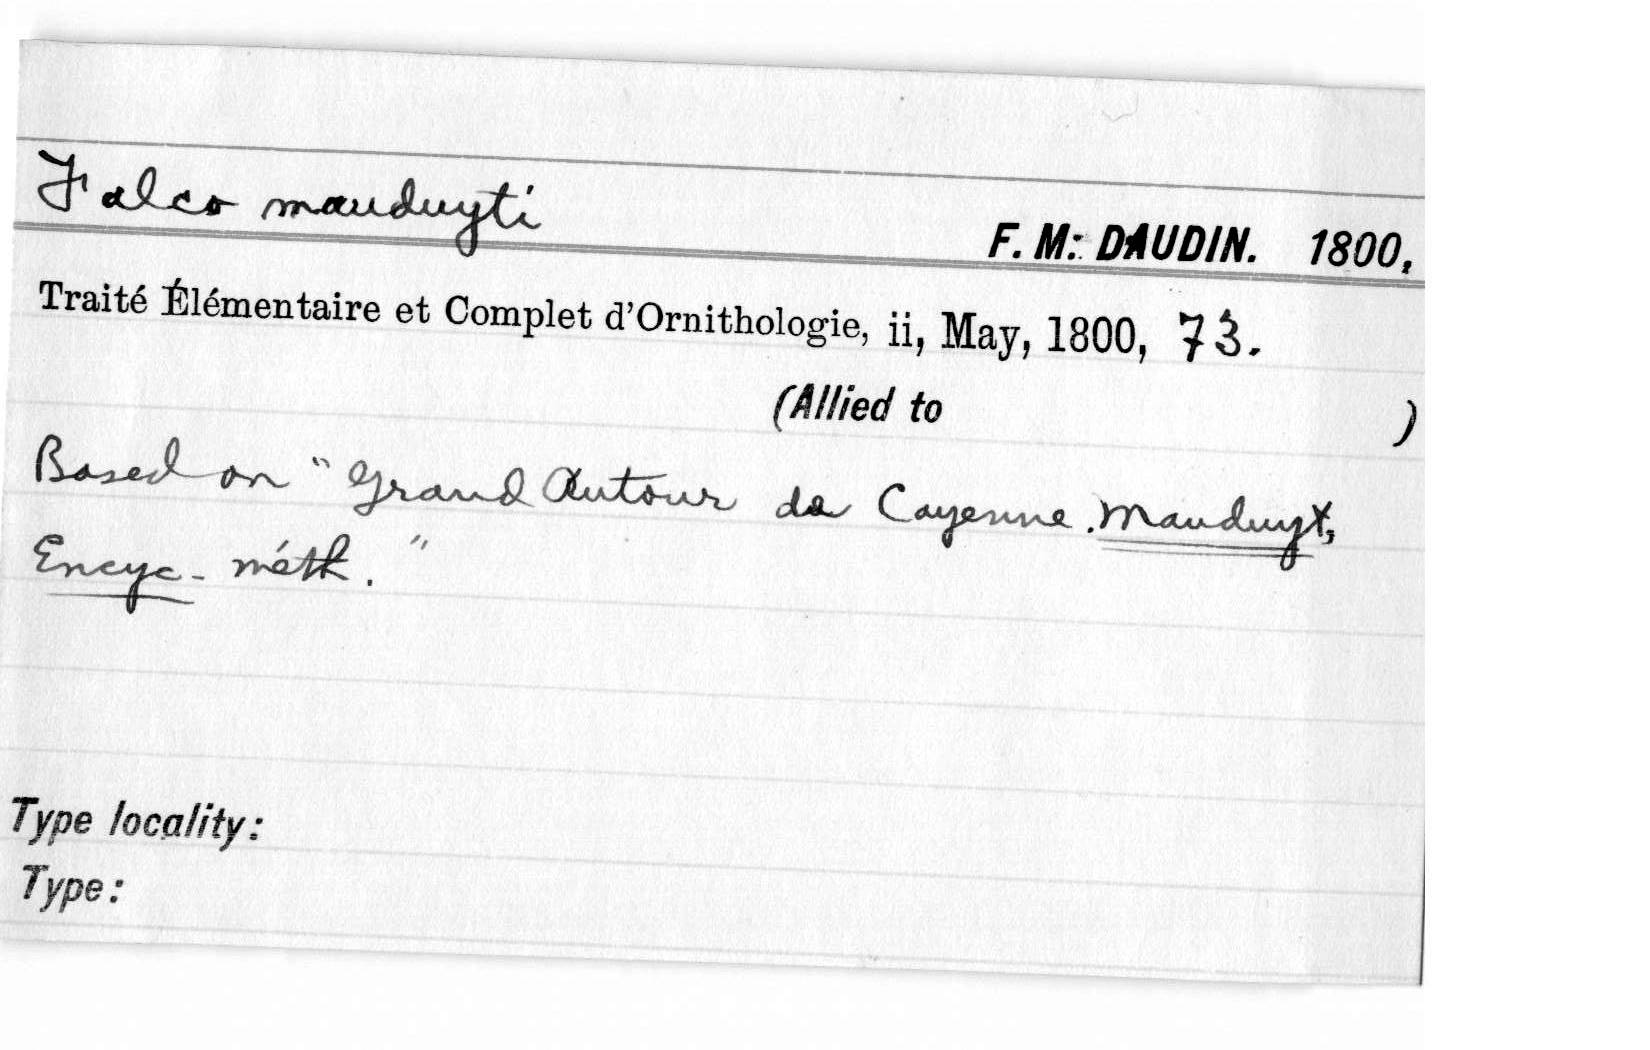 Falco mauduyti
F. M. DAUDIN. 1800,
Traité Élémentaire et Complet d'Ornithologie, ii, May, 1800, 73.
(Allied to )
Based on "Grand Autour de Cayenne. Mauduyt,
Encyc. méth."
Type locality:
Type: